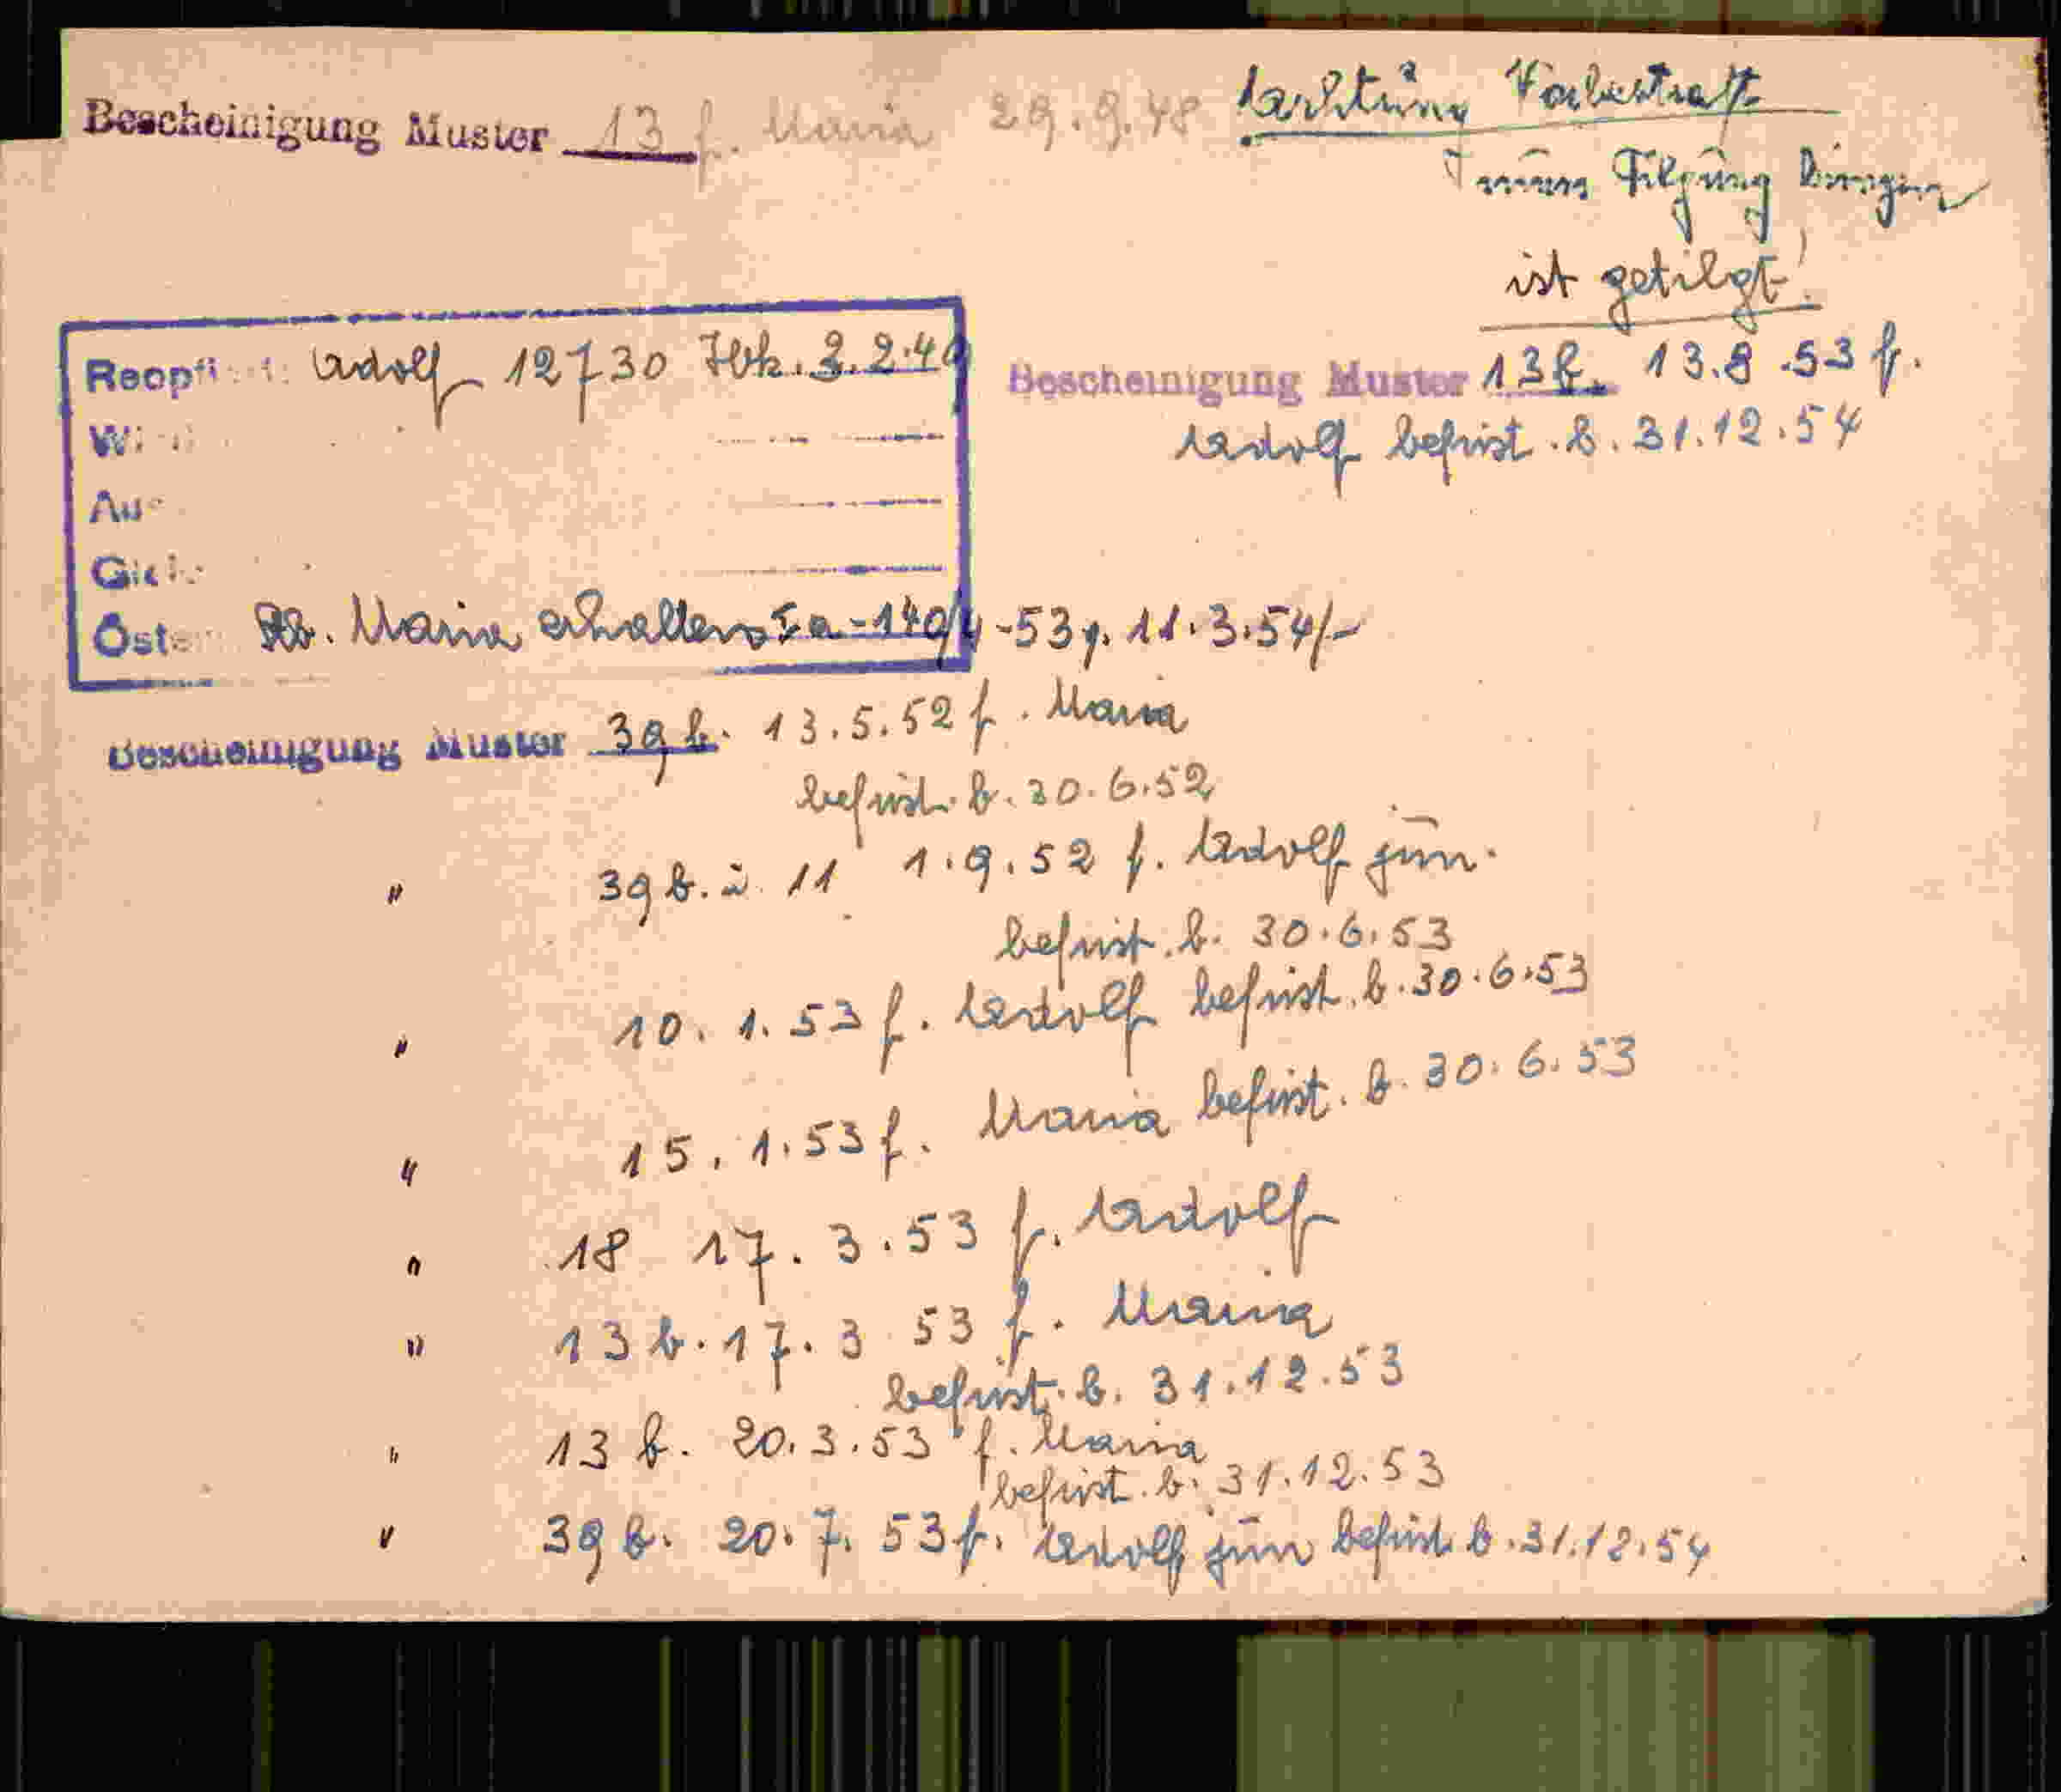 Bescheinigung Muster 13 f. Maria 29.9.48
Achtung Vorbestraft
Tilgung
ist getilgt!
Adolf 12730 2.2.40
Bescheinigung Muster 13 b. 13.8.53 f.
Adolf befrist. b. 31.12.54
Stb. Maria erhalten -53 11.3.54/-
Bescheinigung Muster 39 b. 13.5.52 f. Maria
befrist. b. 30.6.52
" 39 b. ü. 11 1.9.52 f. Adolf jun.
befrist. b. 30.6.53
" 10. 1. 53 f. Adolf befrist. b. 30.6.53
" 15. 1. 53 f. Maria befrist. b. 30.6.53
" 18 17. 3. 53 f. Adolf
" 13 b. 17. 3 53 f. Maria
befrist. b. 31.12.53
" 13 b. 20.3.53 f. Maria
befrist. b. 31.12.53
" 39 b. 20.7.53 f. Adolf jun befrist b. 31.12.54